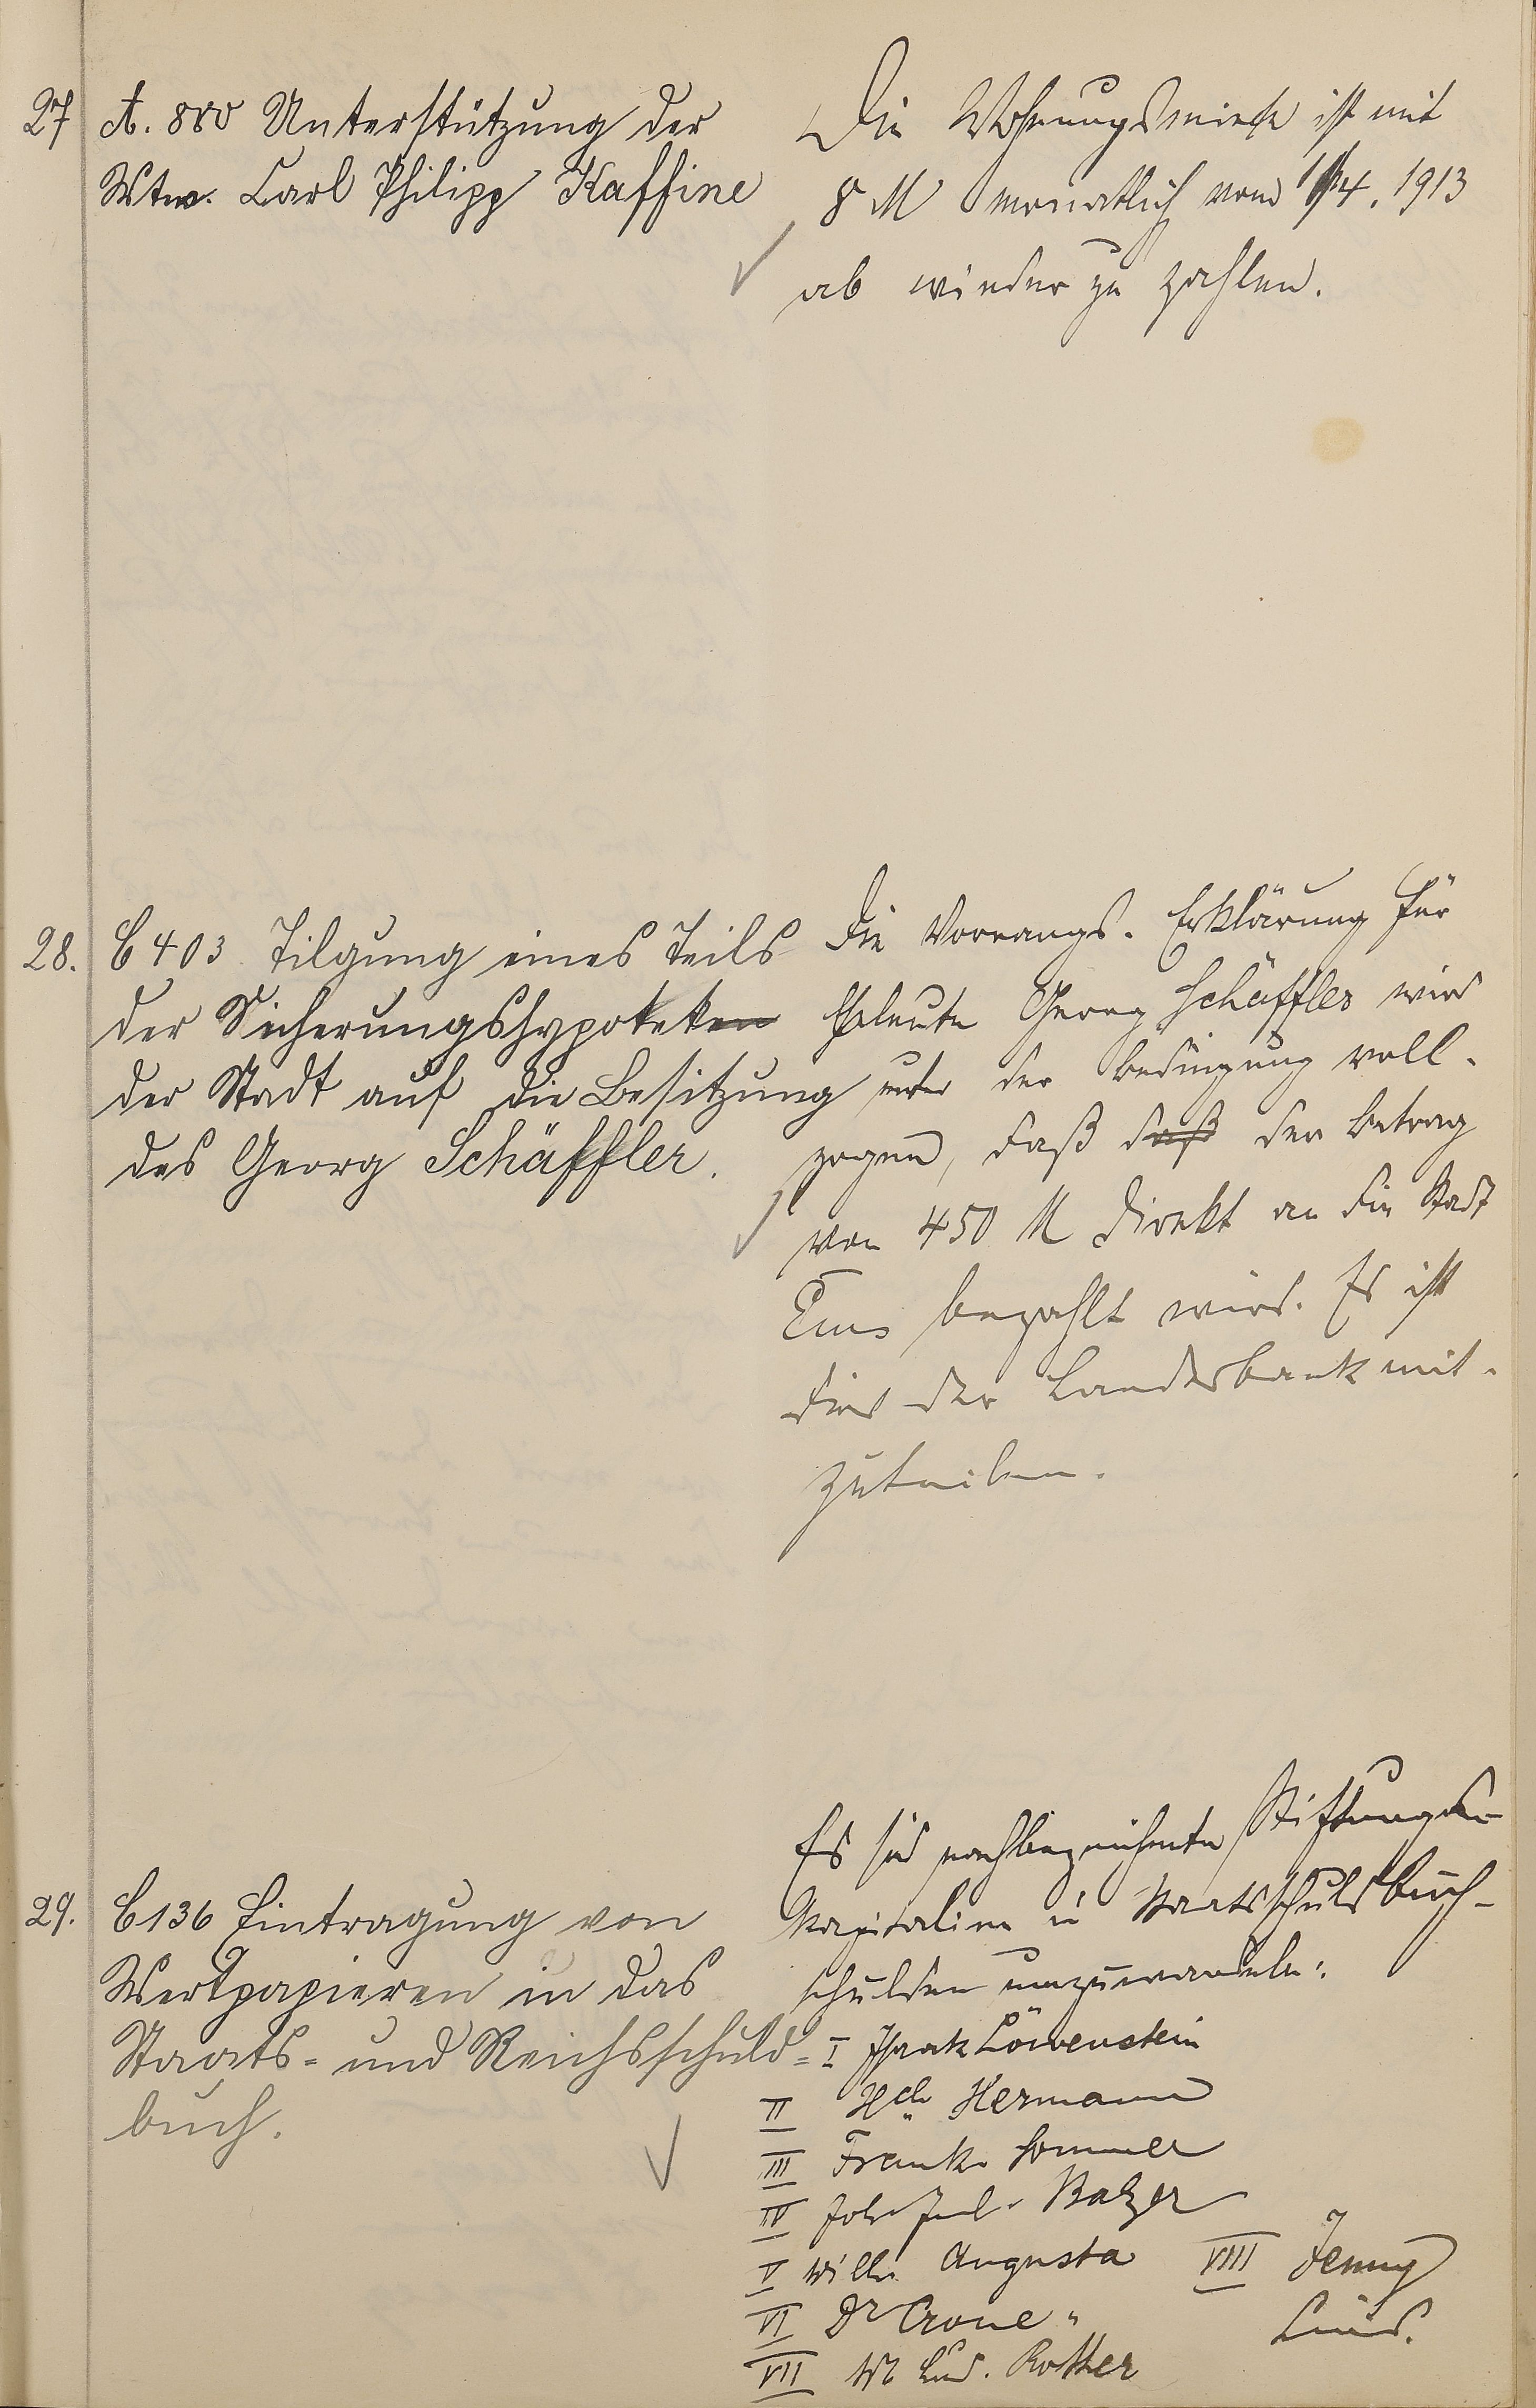 27 A. 880 Unterstützung der
Wtw. Carl Philipp Kaffine
Die Wohnungsmiete ist mit
8 M monatlich vom 1/4. 1913
ab wieder zu zahlen.
28. C 403 Tilgung eines Teils
der Sicherungshypoteken
der Stadt auf die Besitzung
des Georg Schäffler.
Die Vorrangs-Erklärung für
Eheleute Georg Schäffler wird
unter der Bedingung voll-
zogen, daß daß der Betrag
von 450 M direkt an die Stadt
Ems bezahlt wird. Es ist
dies der Landesbank mit-
zuteilen.
29. C 136 Eintragung von
Wertpapieren in das
Staats- und Reichsschuld-
buch.
Es sind nachbezeichnete Stiftungs-
Kapitalien in Staatsschuldbuch-
schulden umzuwandeln:
I Isaak Löwenstein
II Hch. Hermann
III Frank Sommer
IV Joh. Balzer
V Wilh. Augusta
VI Dr Crone "
VII Lud. Rother
VIII Jenny